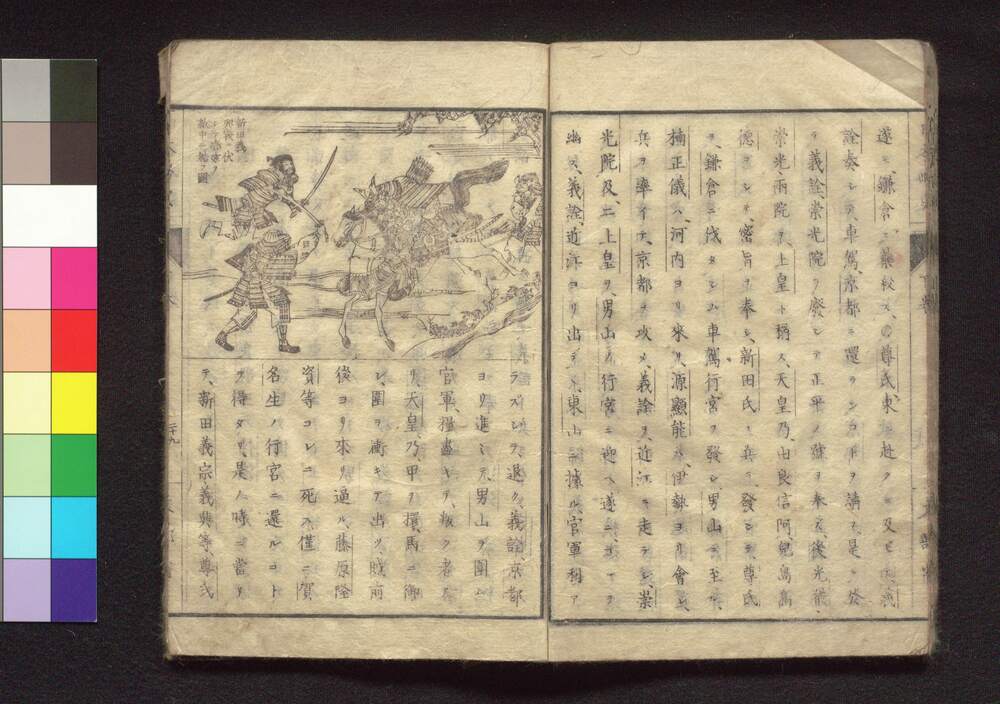 遂ニ、鎌倉ニ
詮奏シテ、車駕、京都ニ還ランコトヲ請フ、是ニ於
テ、義詮、崇光院ヲ廢シテ、正平ノ號ヲ奉ズ、後光嚴、
崇光、兩院ヲ、上皇ト稱ス、天皇乃、由良信阿、兒島高
德ヲシテ、密旨ヲ奉ジ、新田氏ノ兵ヲ發シテ、尊氏
ヲ、鎌倉ニ伐タシム、車駕行宮ヲ發シ、男山ニ至ル、
楠正儀ハ、河内ヨリ來リ、源顯能ハ、伊勢ヨリ會シ、
兵ヲ率イテ、京都ヲ攻メ、義詮ヲ、近江ニ走ラシ、崇
光院及、二上皇ヲ、男山ノ行宮ニ迎ヘ、遂ニ、コレヲ
幽ス、義詮、近江ヨリ出デ、東山ニ據ル、官軍利ア
ラズシテ、退ク、義詮、京都
ヨリ進ミテ、男山ヲ圍ム、
官軍、糧盡キテ、叛ク者
リ、天皇乃甲ヲ擐、馬ニ御
シ、圍ヲ衝キテ出ヅ、賊兩
後ヨリ來リ逼ル、藤原隆
資等コレニ死ス、僅ニ賀
名生ノ行宮ニ還ルコト
ヲ得タリ、是ノ時ニ當リ
テ、新田義宗義興等、尊氏